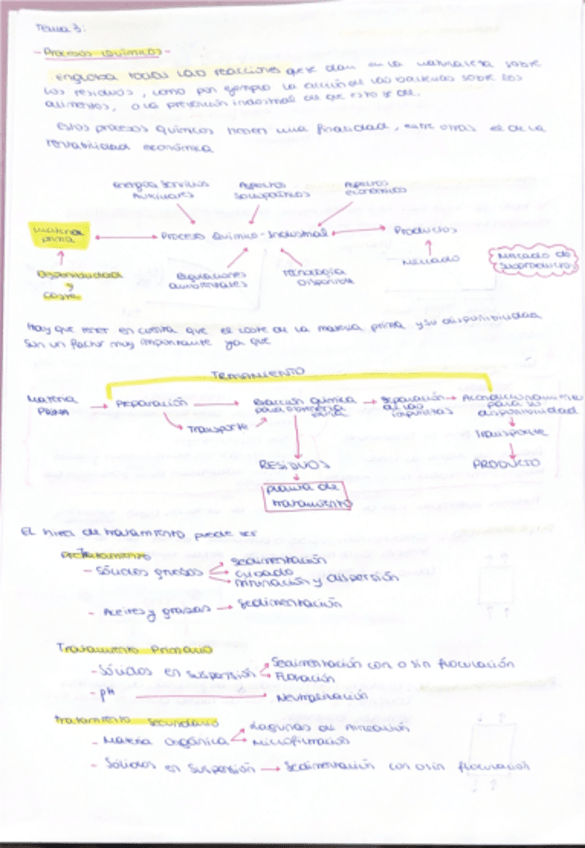 Tema 3:
- Procesos Químicos -
Engloba todas las reacciones que se dan en la naturaleza sobre
los residuos, como por ejemplo la acción de las bacterias sobre los
alimentos, o la prevención industrial de que esto se de.
Estos procesos químicos tienen una finalidad, entre otras es de la
rentabilidad económica
Energía Servicios Auxiliares
Aspectos Sociopolíticos
Aspectos económicos
Materia prima
Proceso Químico-Industrial
Productos
Disponibilidad
y
Coste
Regulaciones ambientales
Tecnología Disponible
Mercado
Mercado de Subproductos
Hay que tener en cuenta que es coste de la materia prima y su disponibilidad
son un factor muy importante ya que
TRATAMIENTO
Materia PRIMA
Preparación
Reacción química para obtenerla
Separación de las impurezas
Acondicionamiento para su disponibilidad
Transporte
Transporte
RESIDUOS
PRODUCTO
planta de
tratamiento
El nivel de tratamiento puede ser
Pretratamiento
- Sólidos gruesos
Sedimentación
Cribado
y dispersión
- Aceites y grasas → Sedimentación
Tratamiento Primario
- Sólidos en suspensión
Sedimentación con o sin floculación
Flotación
- pH → Neutralización
Tratamiento Secundario
- Materia orgánica
Lagunas de Aireación
Microfiltración
- Sólidos en suspensión → Sedimentación con o sin floculación